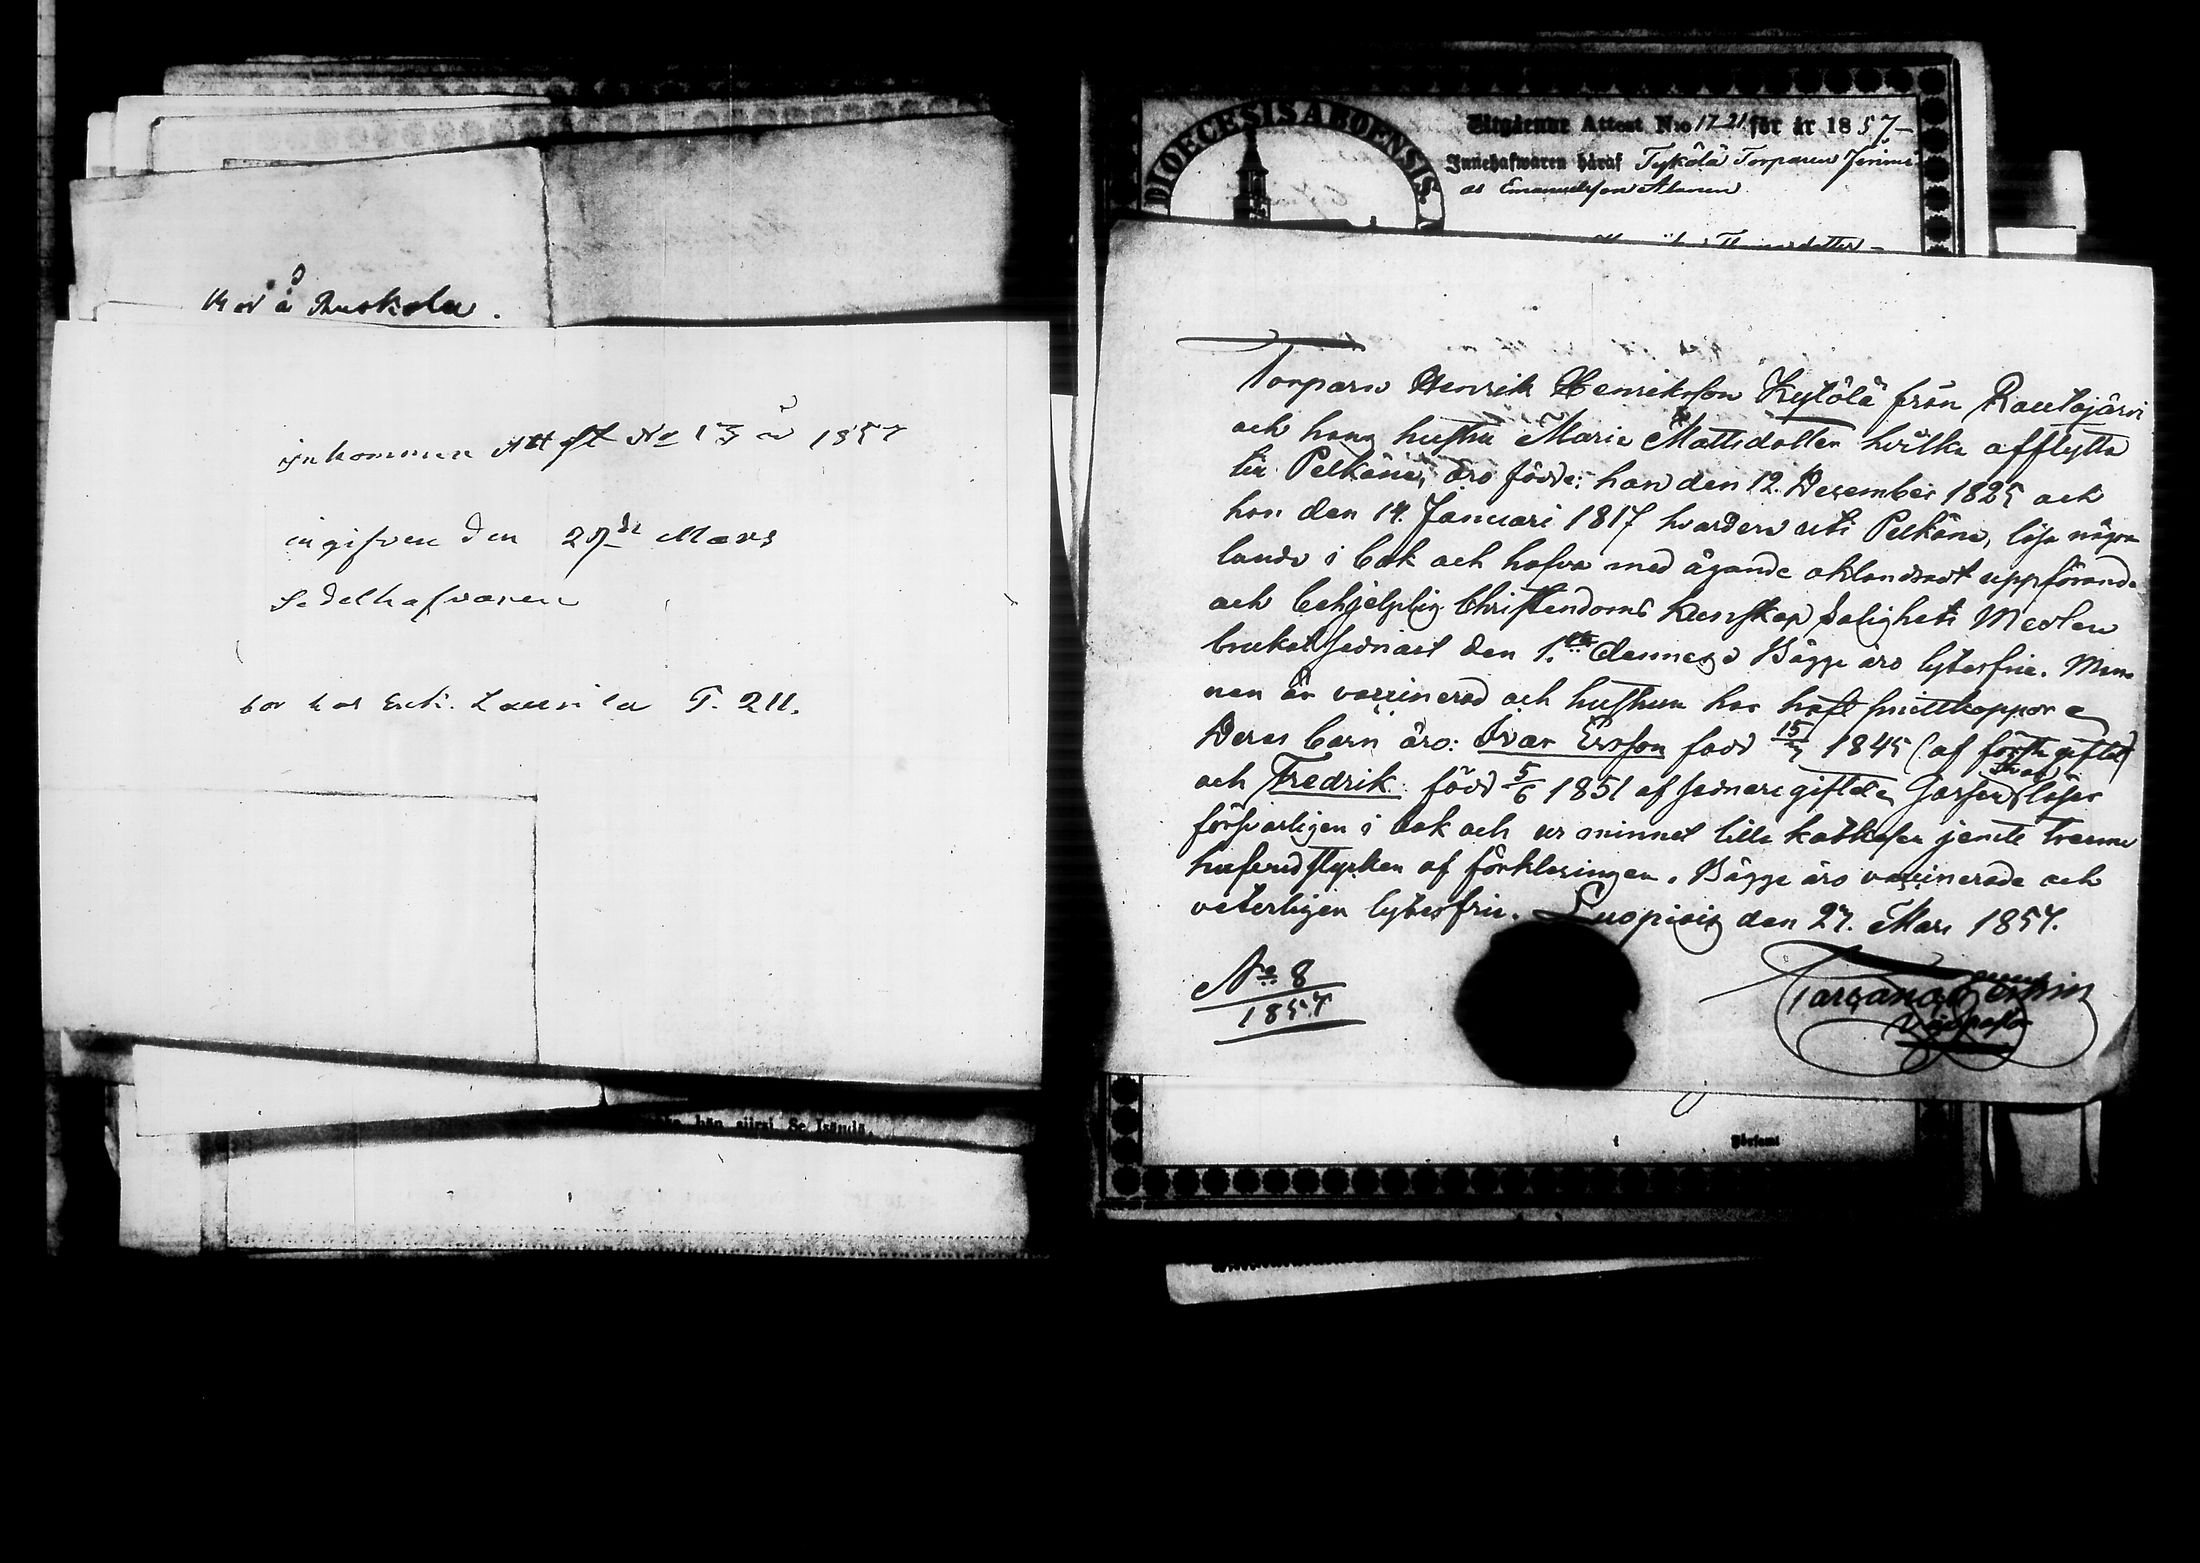 Bor å Ruskola.
Inkommen Attest No 13 år 1857
ingifven den 29de Mars
Sedelhafvaren
bor hos Erik Laurila P. 211.
hän siirsi Se Isändä.
DIOECESIS ABOENSIS.
Utgående Attest N:o 17-21 för år 1857
Innehafwaren häraf Tykölä Torparen Jerimi
as Emanuelsson Alanen
Torparen Henrik Henriksson Kylölä från Rautajärvi
och hans hustru Maria Mattsdotter hvilka afflytta
till Pelkäne, äro födde: han den 12. December 1825 och
hon den 14. Januari 1817 hvardera uti Pelkäne, läsa någor
lunda i bok och hafva med ägande oklandradt uppförande
och behjelplig Christendoms kunskap Salighets Medlen
brukat sednast den 1. dennes. Bägge äro lytesfrie. Man
nen är vaccinerad och hustrun har haft smittkoppor
Deras barn äro: Ivar Ersson född 15/7 1845 (af förra giftet)
och Fredrik född 5/6 1851 af sednare giftet. Gossen Ivar läser
försvarligen i bok och ur minnet lilla kathesen jemte trenne
hufvudstycken af förklaringen. Bägge äro vaccinerade och
veterligen lytesfrie. Luopiois den 27. Mars 1857.
No 8
1857
Församl